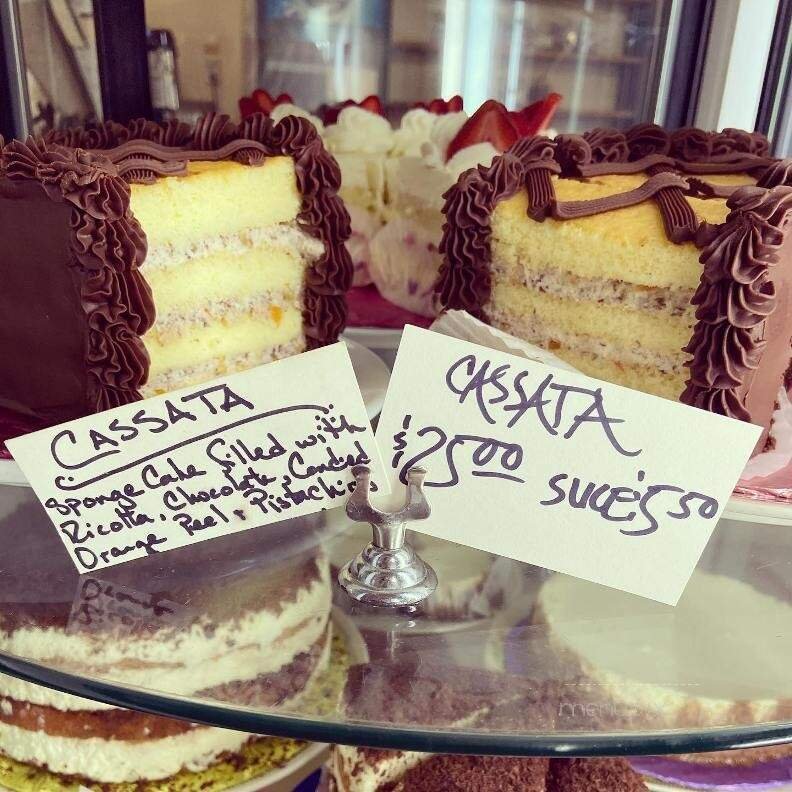 CASSATA
Sponge Cake filled with
Ricotta, Chocolate, Candied
Orange Peel, Pistachios
CASSATA
$25.00 SLICE 5.50